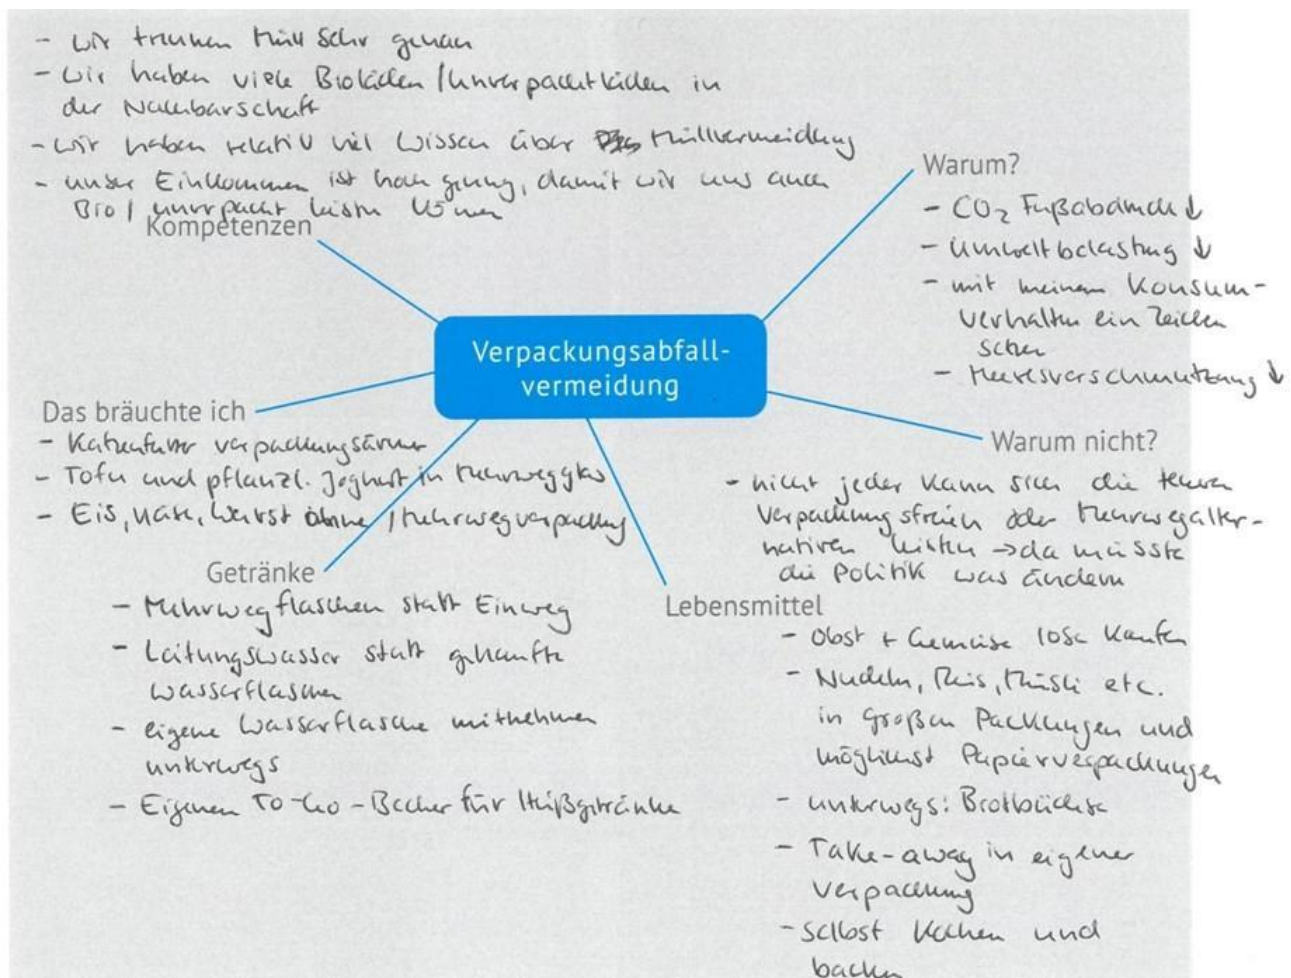 - wir trennen Müll sehr genau
- wir haben viele Bioläden / Unverpacktläden in
der Nachbarschaft
- wir haben relativ viel Wissen über Müllvermeidung
- unser Einkommen ist hoch genug, damit wir uns auch
Bio / unverpackt leisten können
Kompetenzen
Warum?
- CO₂ Fußabdruck ↓
- Umweltbelastung ↓
- mit meinem Konsum-
verhalten ein Zeichen
setzen
- Meeresverschmutzung ↓
Verpackungsabfall-
vermeidung
Das bräuchte ich
- Katzenfutter verpackungsärmer
- Tofu und pflanzl. Joghurt in Mehrwegglas
- Eis, Käse, Wurst ohne / Mehrwegverpackung
Warum nicht?
- nicht jeder kann sich die teuren
verpackungsfreien oder Mehrwegalter-
nativen leisten → da müsste
die Politik was ändern
Getränke
- Mehrwegflaschen statt Einweg
- Leitungswasser statt gekaufte
Wasserflaschen
- eigene Wasserflasche mitnehmen
unterwegs
- Eigenen To-Go-Becher für Heißgetränke
Lebensmittel
- Obst + Gemüse lose kaufen
- Nudeln, Reis, Müsli etc.
in großen Packungen und
möglichst Papierverpackungen
- unterwegs: Brotbüchse
- Take-away in eigener
Verpackung
- selbst kochen und
backen